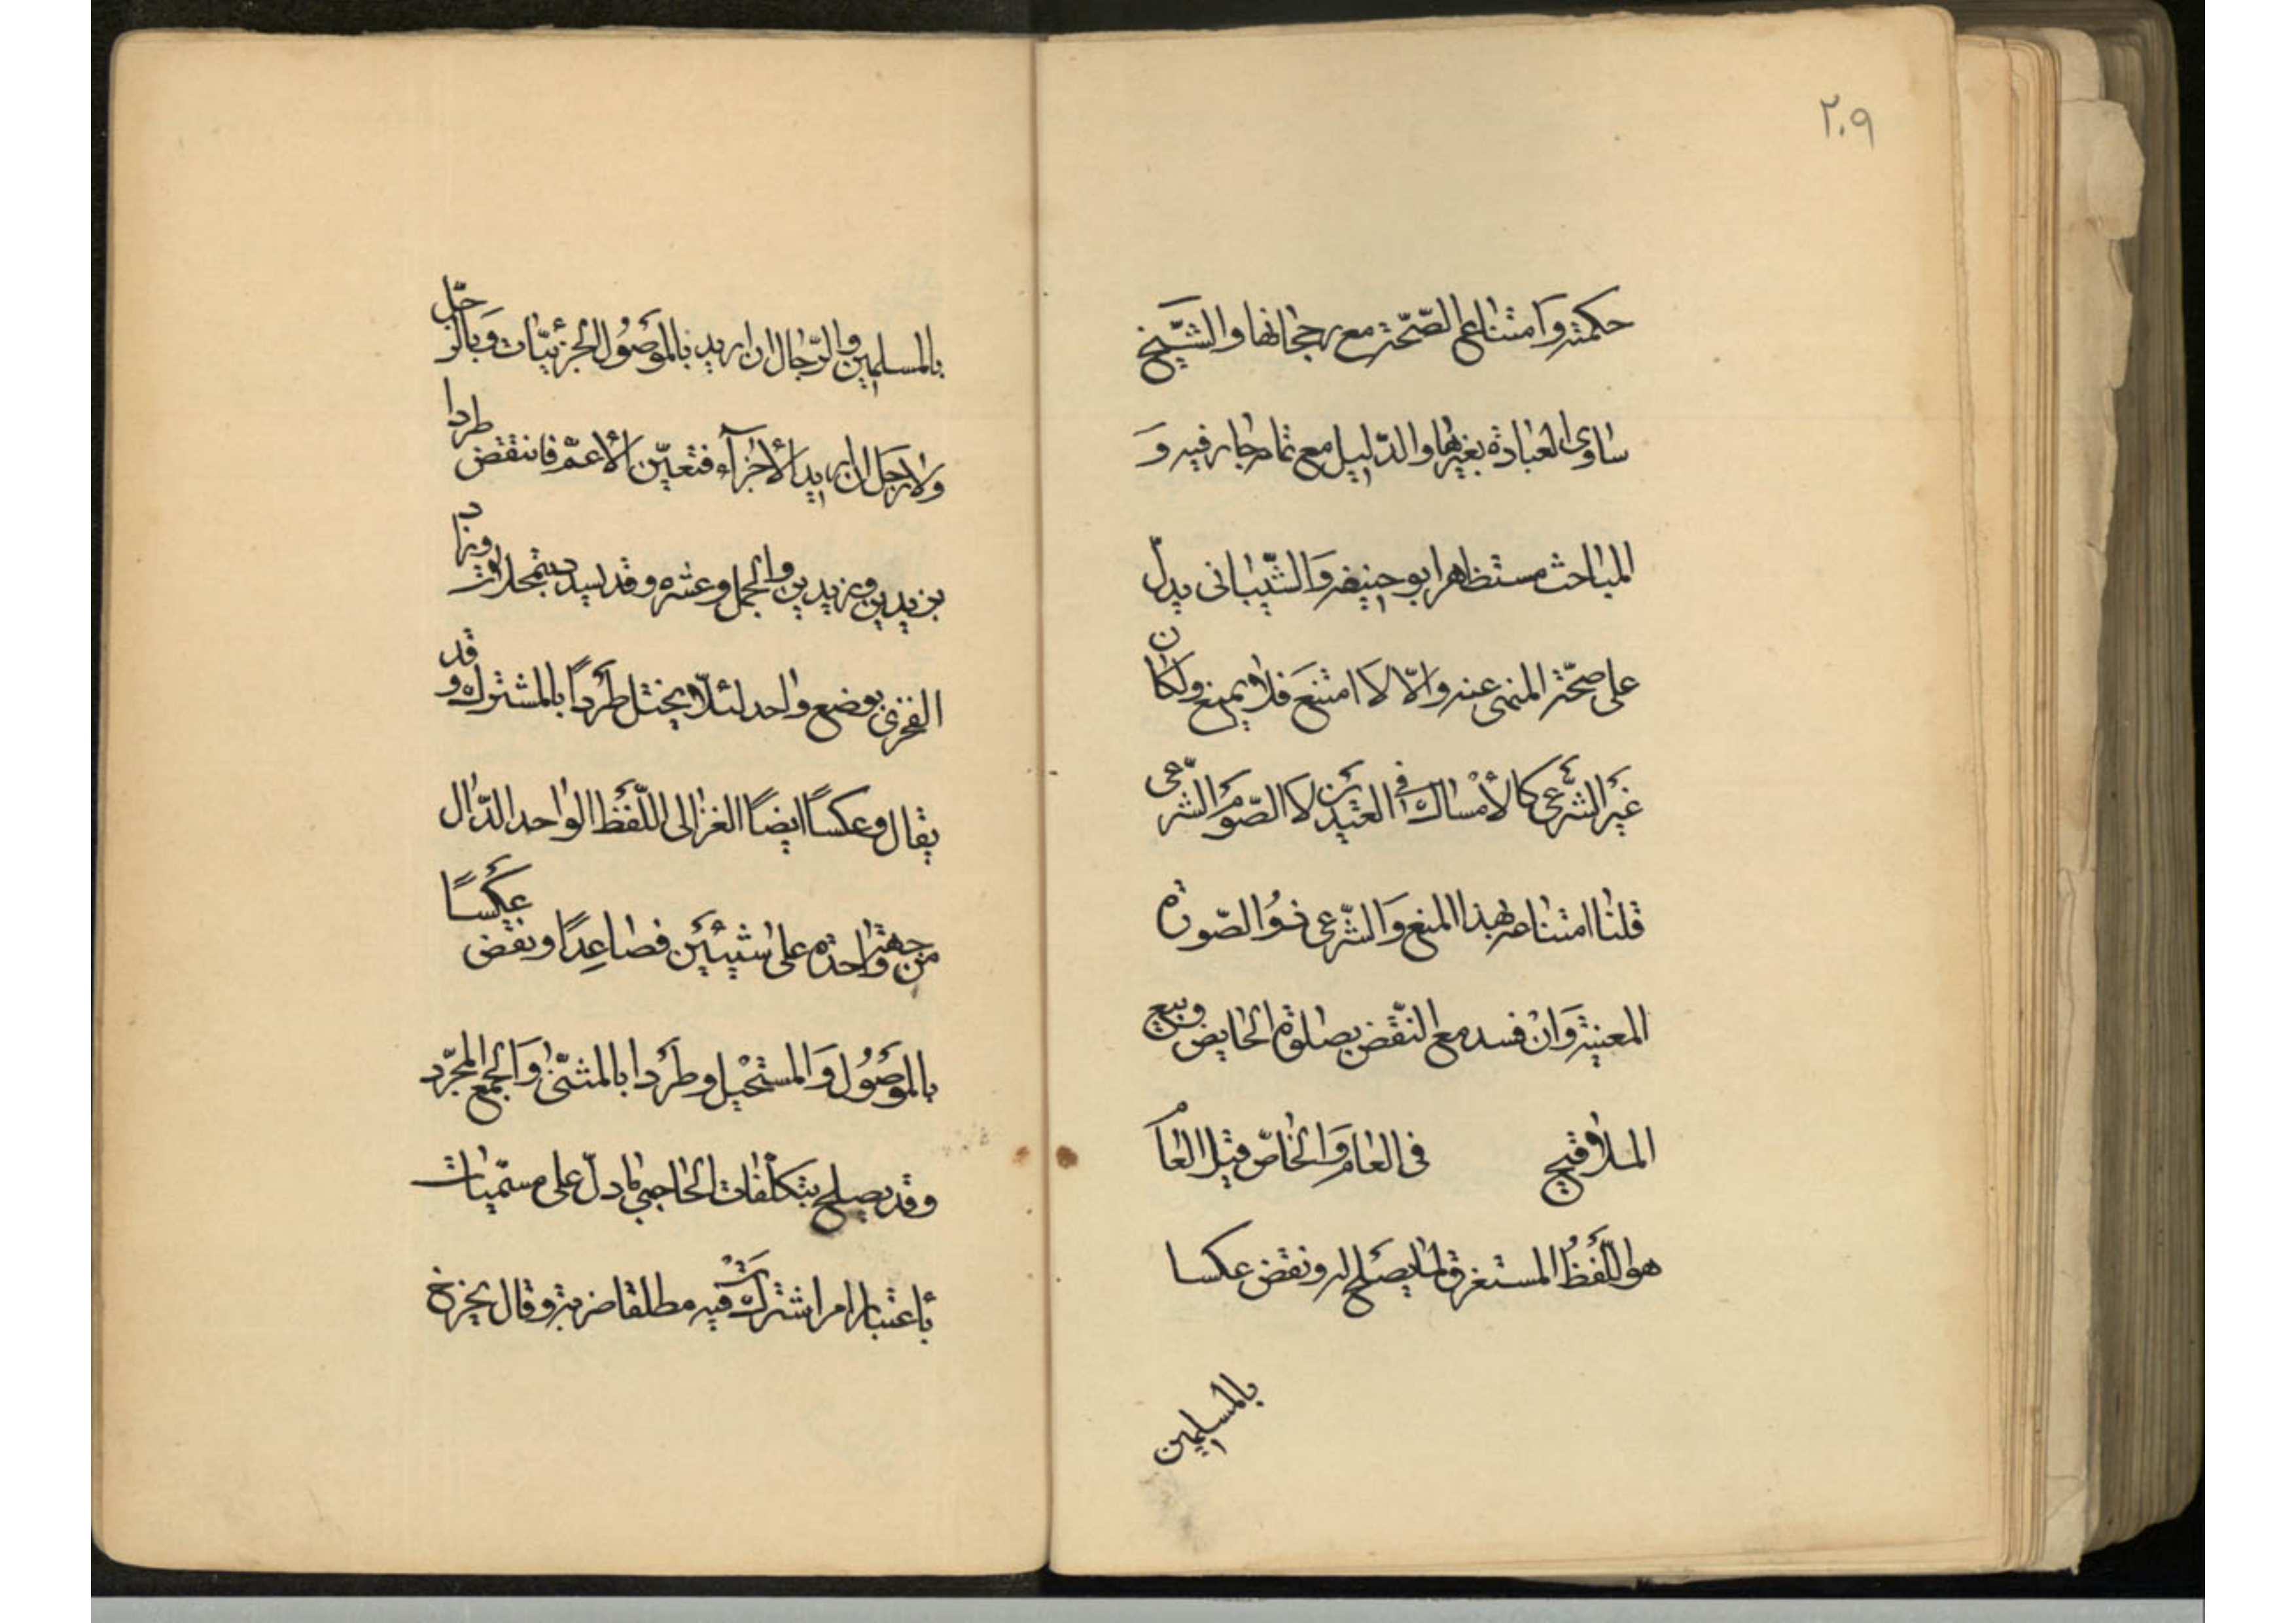 ٢٠٩
حكمته وَامتناع الصّحّة مع رجحانها والشّيخ
ساوى العبادة بغيرها والدّليل مع تمامه جار فيه وَ
المباحث مستظهر ابو حنيفه وَالشّيبانى يدلّ
على صحّة المنهى عنه وَالّا لامتنعَ فلا يمنع ولكان
غيَر الشّرعى كالأمْساك فى العيدَين لا الصّوَم الشّرعى
قلنا امتناعه لهذا المنع وَالشّرعى ذوُ الصّورة
المعينة وَانْ فسد مع النّقض بصلوة الحايض وبيع
الملاقيح فى العام وَالخاصّ قيل العاَم
هو اللّفَظُ المستغرق لما يصَلح له ونقض عكسا
بالمسَلمين
بالمسلمين والرّجال ان اريد بالموَصُول الجزئيّات وَبالرّجل
ولا رجَل ان اريد الأجزآء فتعيّن الأعمّ فانتقض طردا
بزيدين وزيدين والجمل وعشره وقد يسدد بتمحلات وزاد
الفخرى بوضع واحد لئلّا يختل طَرداً بالمشترك وقد
يقال وعكساً ايضاً الغزالى اللّفَظ الواحد الدّال
من جهة واحدة على شيئَين فصاعِداً ونقض عكَساً
بالموَصُول وَالمستحيل وطرَدا بالمثنّى وَالجمع المجرّد
وقد يصلح بتكلّفات الحاجبى ما دلّ على مسمّيات
بأعتبار امر اشتركَتْ فيه مطلقا ضربة وقال يخرج